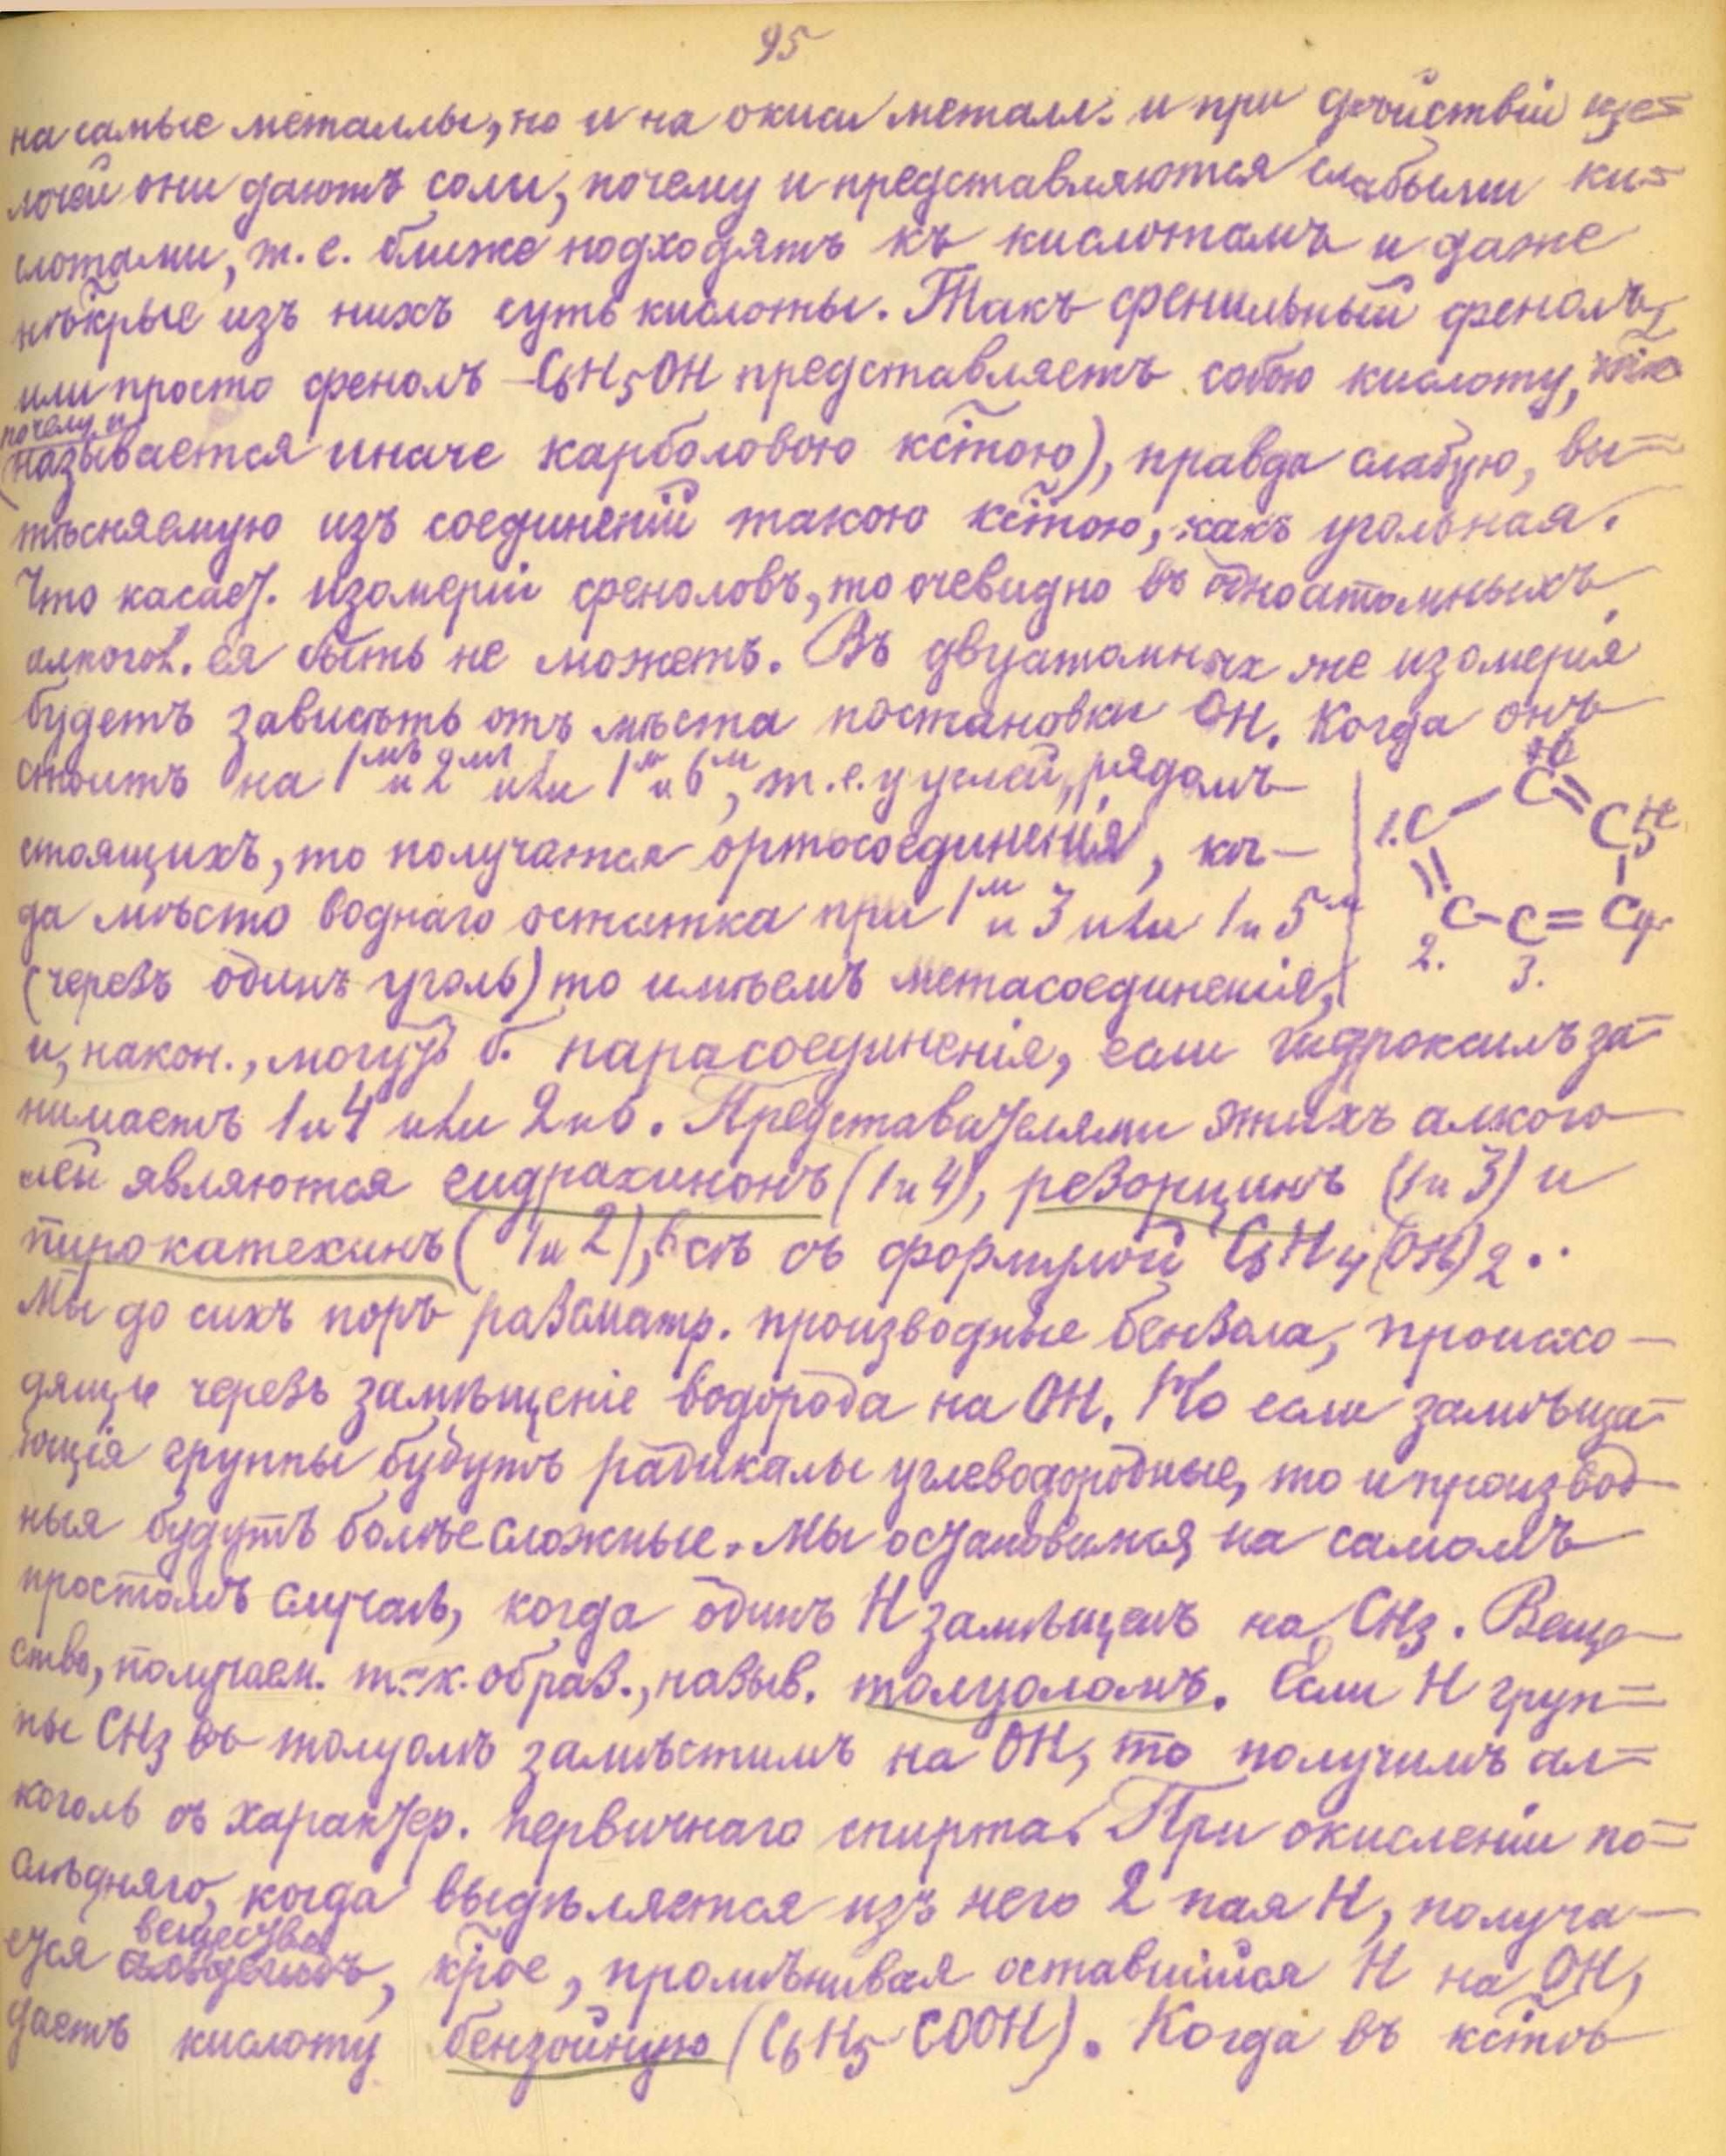 95
на самые металлы, но и на окиси металл. и при дѣйствіи ще=
лочей они даютъ соли, почему и представляются слабыми ки=
слотами, т. е. ближе подходятъ къ кислотамъ и даже
нѣкрые изъ нихъ суть кислоты. Такъ фенильный фенолъ,
или просто фенолъ – C6H5OH представляетъ собою кислоту,
почему и
(называется иначе карболовою кстою), правда слабую, вы=
тѣсняемую изъ соединеній такою кстою, какъ угольная.
Что касает. изомеріи феноловъ, то очевидно въ одноатомныхъ
алкогол. ея быть не можетъ. Въ двуатомных же изомерія
будетъ зависѣть отъ мѣста постановки OH. Когда онъ
стоитъ на 1мъ и 2мъ или 1м и 6м, т. е. у углей, рядомъ
стоящихъ, то получатся ортосоединенія, ког–
да мѣсто воднаго остатка при 1м и 3 или 1 и 5м
(черезъ одинъ уголь) то имѣемъ метасоединенія,
C C 5 C 3. C = C 2. C 1. C
и, након., могутъ б. парасоединенія, если гидроксилъ за=
нимаетъ 1 и 4 или 2 и 5. Представителями этихъ алкого–
лей являются гидрахинонъ (1 и 4), резорцинъ (1 и 3) и
пирокатехинъ (1 и 2), всѣ съ формулой C6H4(OH)2..
Мы до сихъ поръ разсматр. производные бензола, происхо–
дящіе черезъ замѣщеніе водорода на OH. Но если замѣща=
ющія группы будутъ радикалы углеводородные, то и производ–
ныя будутъ болѣе сложные. Мы остановимся на самомъ
простомъ случаѣ, когда одинъ H замѣщенъ на CH3. Веще–
ство, получаем. т. к. образ., назыв. толуоломъ. Если H груп=
пы CH3 въ толуолѣ замѣстимъ на OH, то получимъ ал=
коголь съ характер. первичнаго спирта. При окисленіи по=
слѣдняго, когда выдѣляется изъ него 2 пая H, получа–
вещество
ется альдегидъ, крое, промѣнивая оставшійся H на OH,
даетъ кислоту бензойную (C6H5 COOH). Когда въ кстѣ